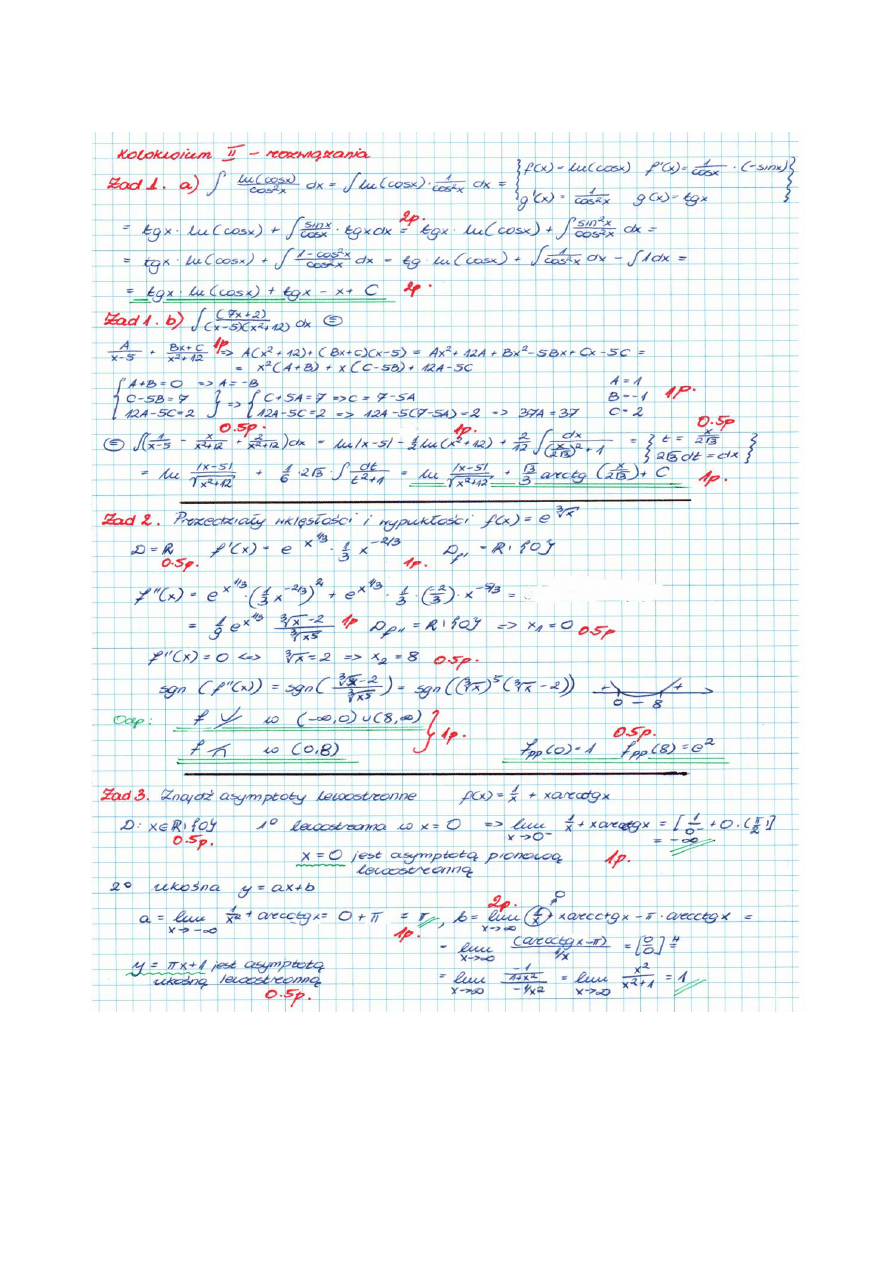 Kolokwium II - rozwiązania
Zad 1. a) ∫ ln(cosx)/cos²x dx = ∫ ln(cosx)·1/cos²x dx = { f(x)=ln(cosx) f'(x)=1/cosx ·(-sinx) }
{ g'(x)=1/cos²x g(x)=tgx }
= tgx·ln(cosx) + ∫ sinx/cosx · tgx dx = 2p. tgx·ln(cosx) + ∫ sin²x/cos²x dx =
= tgx·ln(cosx) + ∫ (1-cos²x)/cos²x dx = tg·ln(cosx) + ∫ 1/cos²x dx - ∫1dx =
= tgx·ln(cosx) + tgx - x + C 2p.
Zad 1. b) ∫ (7x+2)/((x-5)(x²+12)) dx ⊜
A/(x-5) + (Bx+C)/(x²+12) 1p => A(x²+12)+(Bx+C)(x-5) = Ax²+12A+Bx²-5Bx+Cx-5C =
= x²(A+B) + x(C-5B) + 12A-5C
{ A+B=0 => A=-B A=1
{ C-5B=7 } => { C+5A=7 => C=7-5A B=-1 1p.
{ 12A-5C=2 } { 12A-5C=2 => 12A-5(7-5A)=2 => 37A=37 C=2
0.5p. 1p. 0.5p
⊜ ∫(1/(x-5) - x/(x²+12) + 2/(x²+12))dx = ln|x-5| - ½ln(x²+12) + 2/12 ∫ dx/((x/2√3)²+1) = { t = x/2√3 }
{ 2√3dt=dx }
= ln |x-5|/√(x²+12) + 1/6·2√3·∫ dt/(t²+1) = ln |x-5|/√(x²+12) + √3/3 arctg (x/2√3) + C 1p.
Zad 2. Przedziały wklęsłości i wypukłości f(x)=e^∛x
D=R f'(x)=e^x^1/3·1/3 x^-2/3 D_f' = R\{0}
0.5p. 1p.
f''(x) = e^x^1/3·(1/3 x^-2/3)² + e^x^1/3·1/3·(-2/3)·x^-5/3 =
= 1/9 e^x^1/3 (∛x-2)/∛x⁵ 1p D_f'' = R\{0} => x₁=0 0.5p
f''(x)=0 <=> ∛x=2 => x₂=8 0.5p.
sgn (f''(x)) = sgn((∛x-2)/∛x⁵) = sgn((∛x)⁵(∛x-2)) + 0 - 8 +
Odp: f ∪ w (-∞,0)∪(8,∞)
f ∩ w (0,8) } 1p. f_pp(0)=1 f_pp(8)=e² 0.5p.
Zad 3. Znajdź asymptoty lewostronne f(x)=1/x + xarcctgx
D: x∈R\{0} 1° lewostronna w x=0 => lim x→0⁻ 1/x + xarcctgx = [1/0⁻ + 0·(π/2)]
0.5p. = -∞
x=0 jest asymptotą pionową 1p.
lewostronną
2° ukośna y=ax+b
a = lim x→-∞ 1/x² + arcctgx = 0+π = π, 1p. b = lim x→∞ 2p. (1/x)→0 + xarcctgx - π·arcctgx =
= lim x→∞ (arcctgx-π)/(1/x) = [0/0] H=
y=πx+1 jest asymptotą
ukośną lewostronną
0.5p.
= lim x→∞ (-1/(1+x²))/(-1/x²) = lim x→∞ x²/(x²+1) = 1